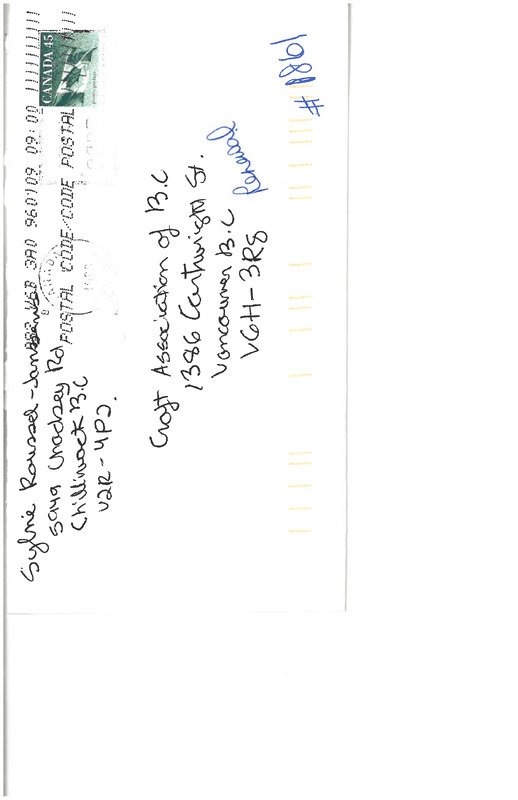 Sylvie Roussel-Janssens
5949 Chadsey Rd
Chilliwack B.C
V2R-4P2.
V6B 3A0 960109 09:00
POSTAL CODE/CODE POSTAL
CANADA 45
Craft Association of B.C
1386 Cartwright St.
Vancouver B.C
V6H-3R8
Renewal
#1861